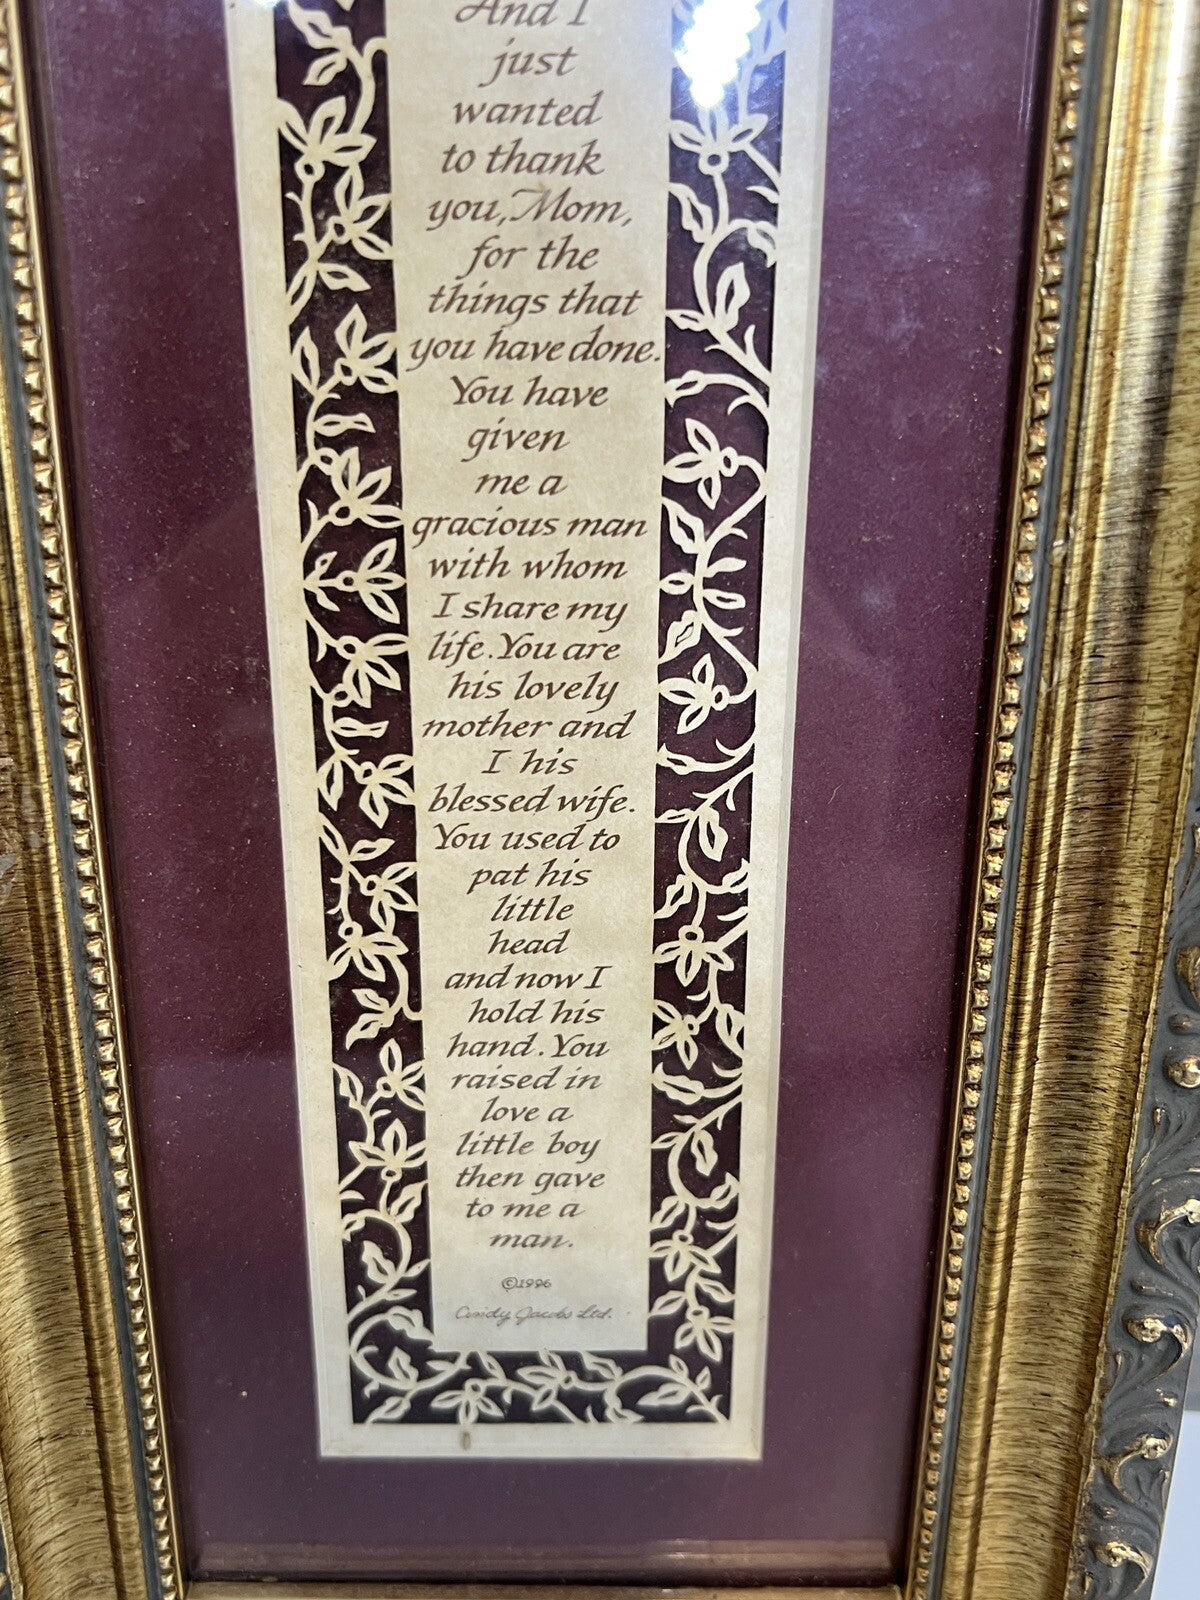 And I
just
wanted
to thank
you, Mom,
for the
things that
you have done.
You have
given
me a
gracious man
with whom
I share my
life. You are
his lovely
mother and
I his
blessed wife.
You used to
pat his
little
head
and now I
hold his
hand. You
raised in
love a
little boy
then gave
to me a
man.
©1996
Cindy Jacobs Ltd.